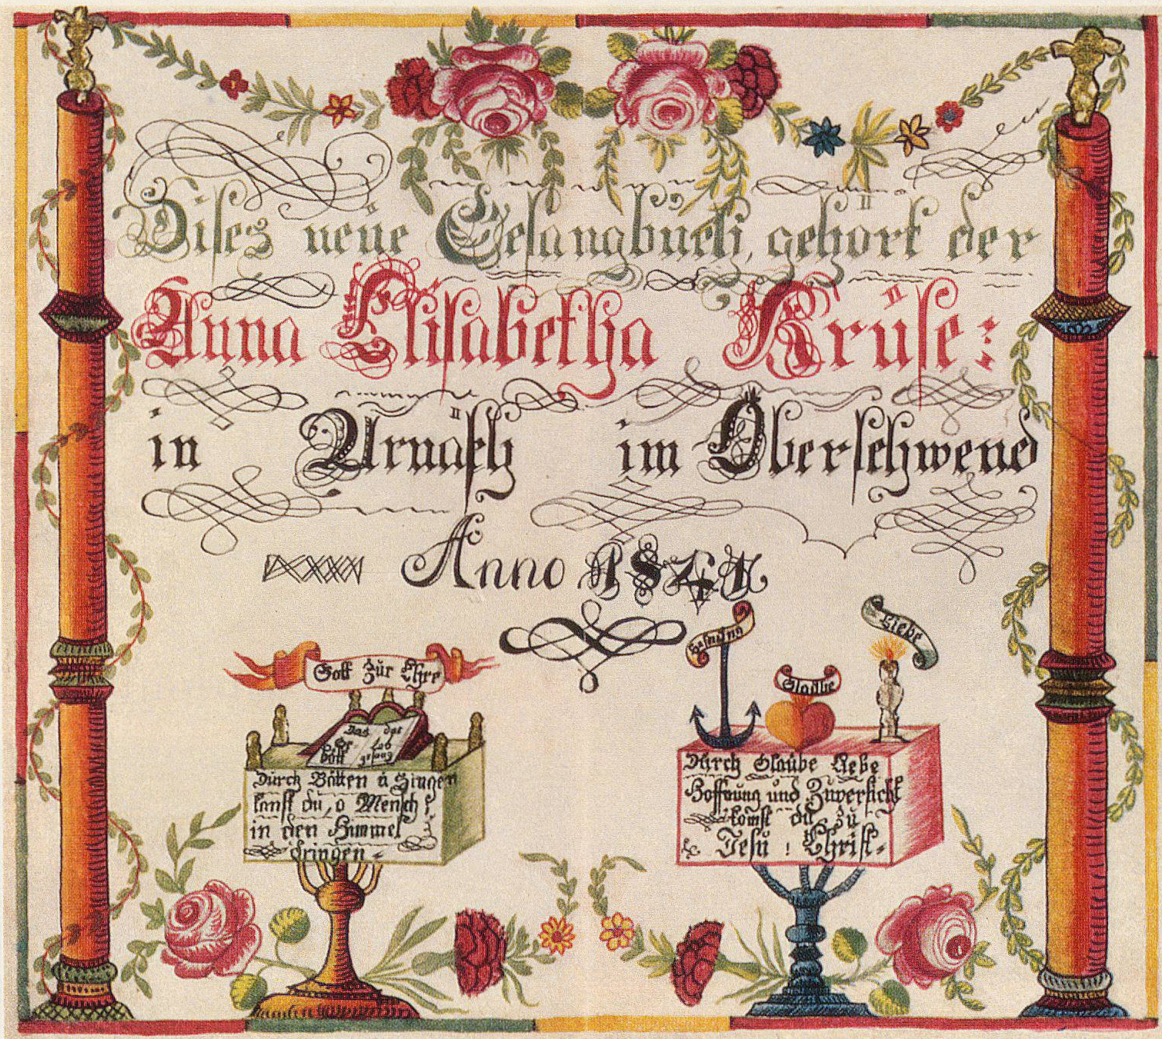 Dises neüe Gesangbuch, gehört der
Anna Elisabetha Krüse:
in Urnäsch im Oberschwend
Anno 1841
Gott Zür Ehre
Das
Gott gesang
Dürch Bätten ü Singen
kanst dü, o Mensch
in den Himmel
dringen
Hofnung
Glaübe
Liebe
Dürch Glaübe Liebe
Hoffnung und Zuversicht
komst dü zü
Jesü : Christ